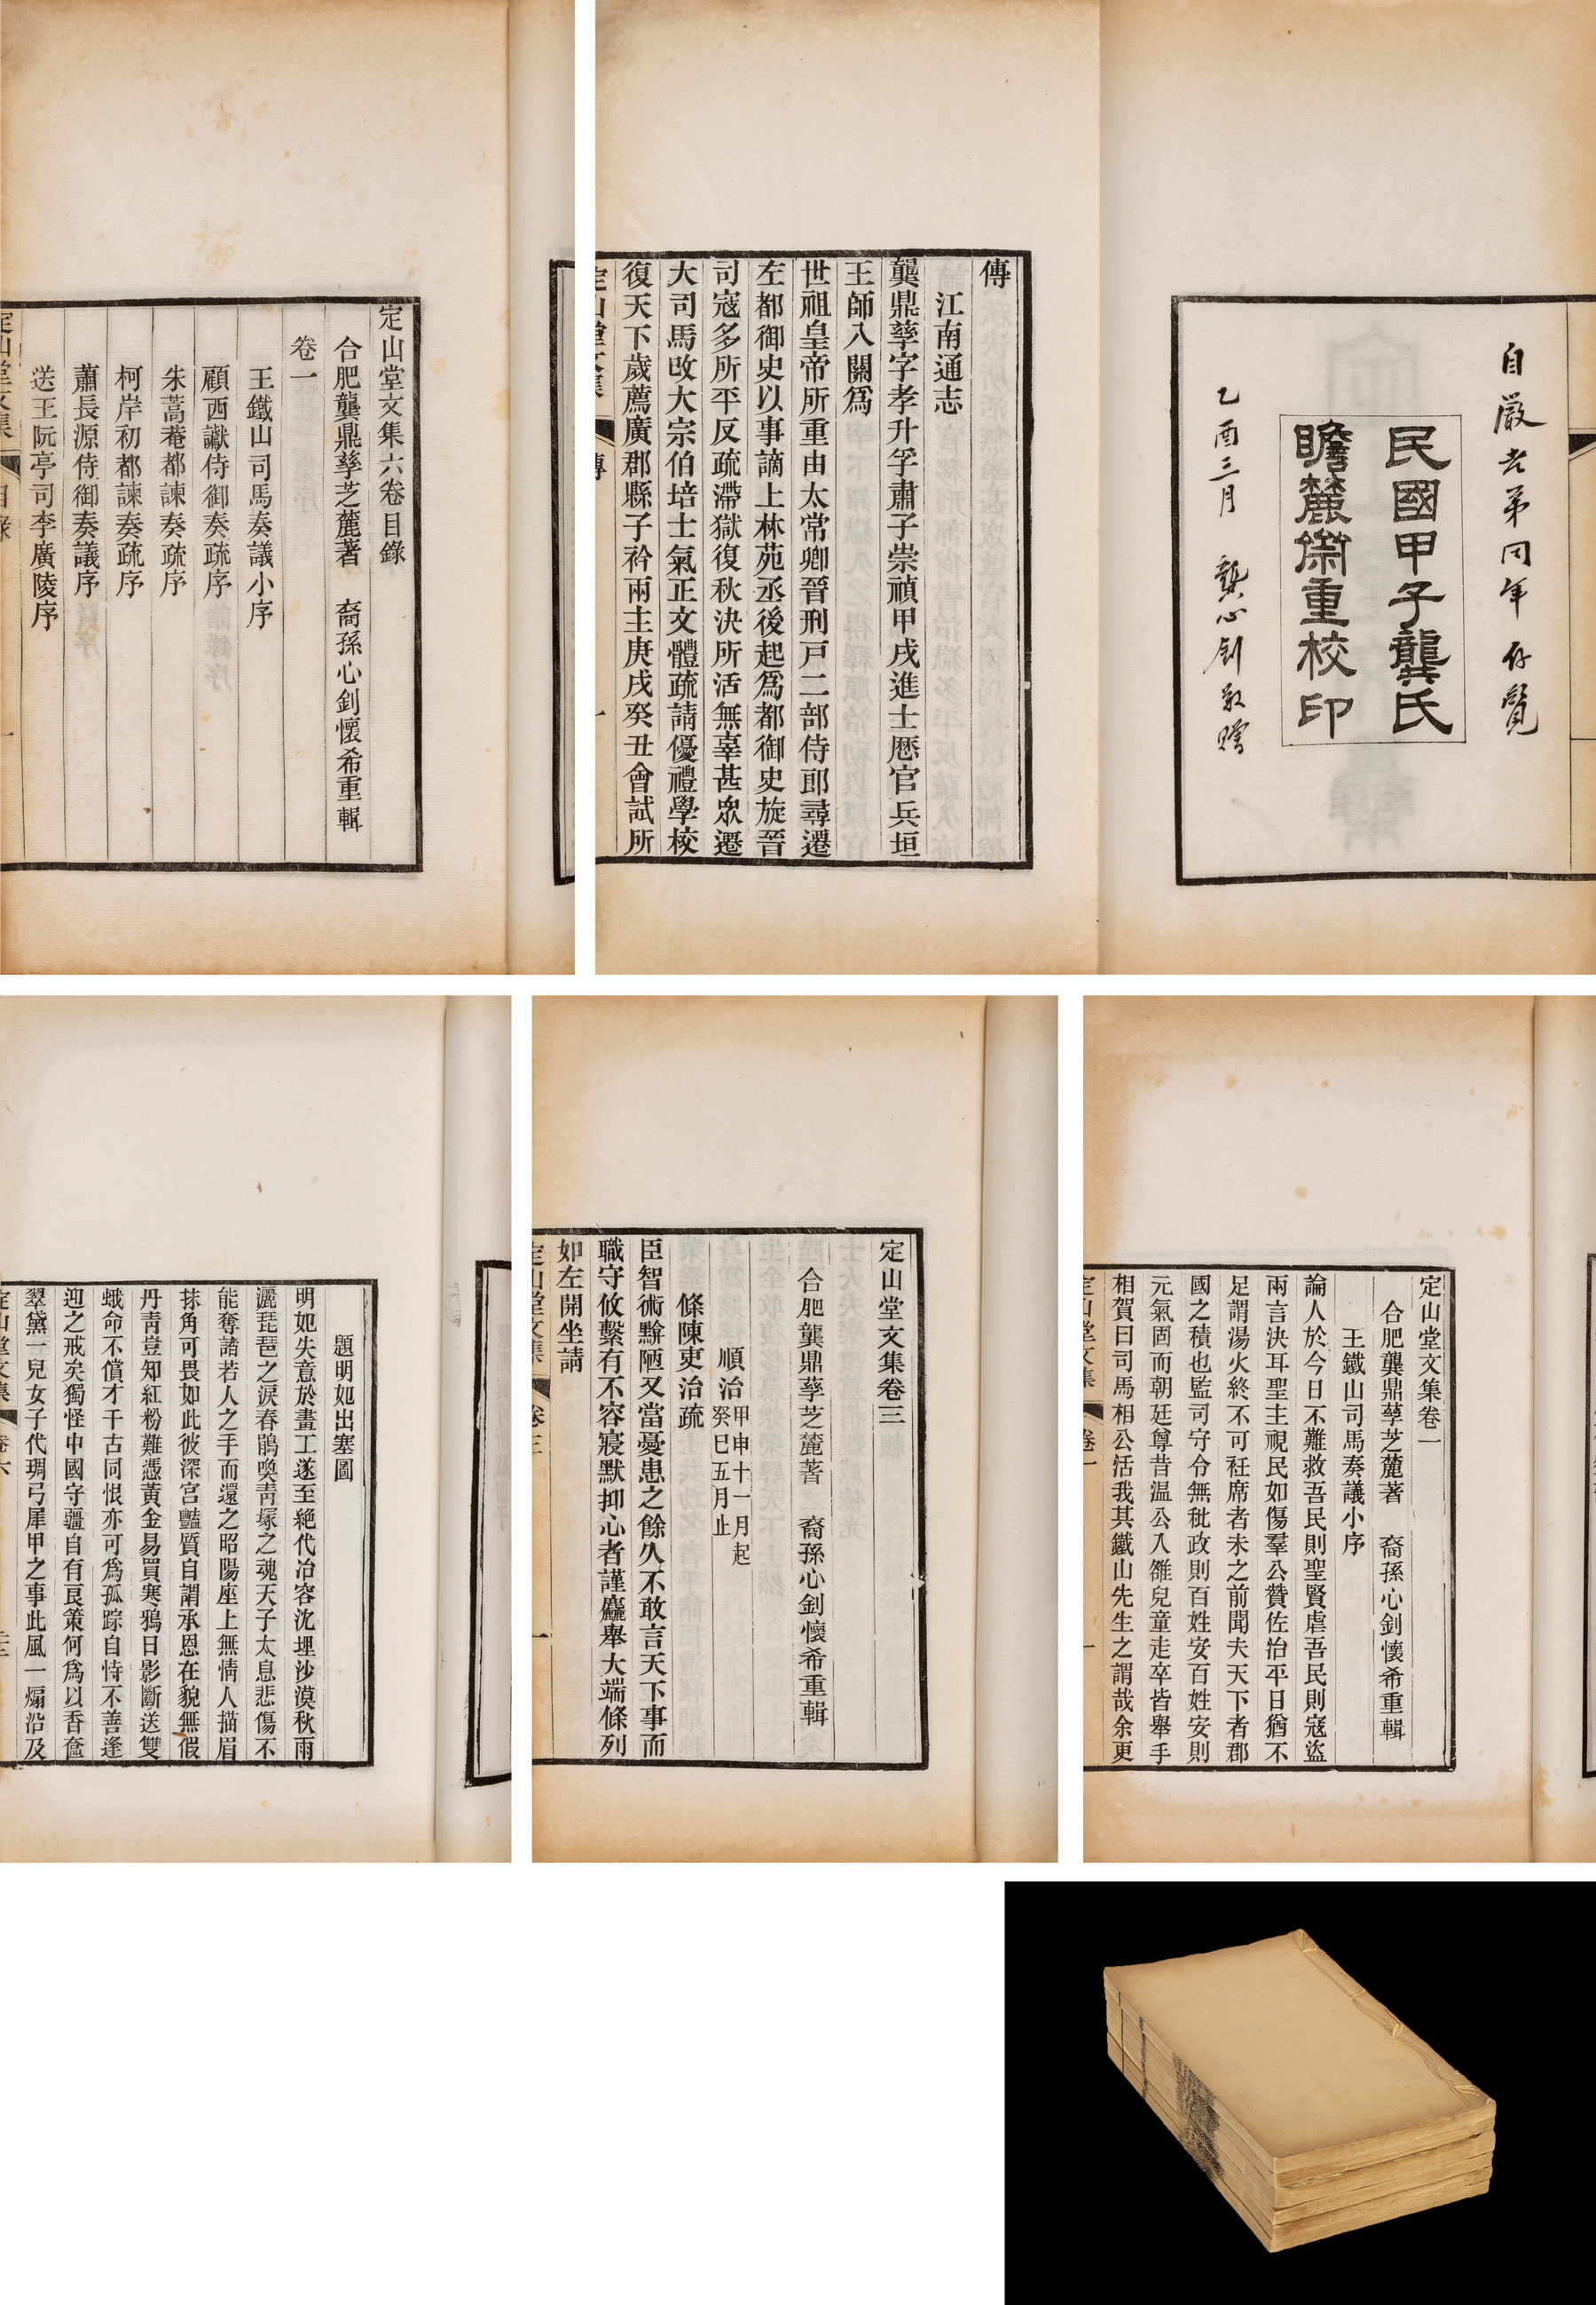 自嚴老弟同年存覽
民國甲子龔氏
瞻麓齋重校印
乙酉三月 龔心釗敬贈
傳
江南通志
龔鼎孳字孝升孚肅子崇禎甲戌進士歷官兵垣
王師入關爲
世祖皇帝所重由太常卿晉刑戶二部侍郎尋遷
左都御史以事謫上林苑丞後起爲都御史旋晉
司寇多所平反疏滯獄復秋決所活無辜甚衆遷
大司馬改大宗伯培士氣正文體疏請優禮學校
復天下歲薦廣郡縣子衿兩主庚戌癸丑會試所
定山堂文集 傳 一
定山堂文集六卷目錄
合肥龔鼎孳芝麓著 裔孫心釗懷希重輯
卷一
王鐵山司馬奏議小序
顧西巘侍御奏疏序
朱蒿菴都諫奏疏序
柯岸初都諫奏疏序
蕭長源侍御奏議序
送王阮亭司李廣陵序
定山堂文集 目錄 一
定山堂文集卷一
合肥龔鼎孳芝麓著 裔孫心釗懷希重輯
王鐵山司馬奏議小序
論人於今日不難救吾民則聖賢虐吾民則寇盜
兩言決耳聖主視民如傷羣公贊佐治平日猶不
足謂湯火終不可衽席者未之前聞夫天下者郡
國之積也監司守令無秕政則百姓安百姓安則
元氣固而朝廷尊昔温公入雒兒童走卒皆舉手
相賀曰司馬相公活我其鐵山先生之謂哉余更
定山堂文集 卷一 一
定山堂文集卷三
合肥龔鼎孳芝麓著 裔孫心釗懷希重輯
順治甲申十一月起
癸巳五月止
條陳吏治疏
臣智術黭陋又當憂患之餘久不敢言天下事而
職守攸繫有不容寢默抑心者謹麤舉大端條列
如左開坐請
定山堂文集 卷三 一
題明妃出塞圖
明妃失意於畫工遂至絶代冶容沈埋沙漠秋雨
灑琵琶之淚春鵑喚靑塚之魂天子太息悲傷不
能奪諸若人之手而還之昭陽座上無情人描眉
抹角可畏如此彼深宫豔質自謂承恩在貌無假
丹靑豈知紅粉難憑黃金易買寒鴉日影斷送雙
蛾命不償才千古同恨亦可爲孤踪自恃不善逢
迎之戒矣獨怪中國守疆自有良策何爲以香奩
翠黛一兒女子代琱弓犀甲之事此風一煽沿及
定山堂文集 卷六